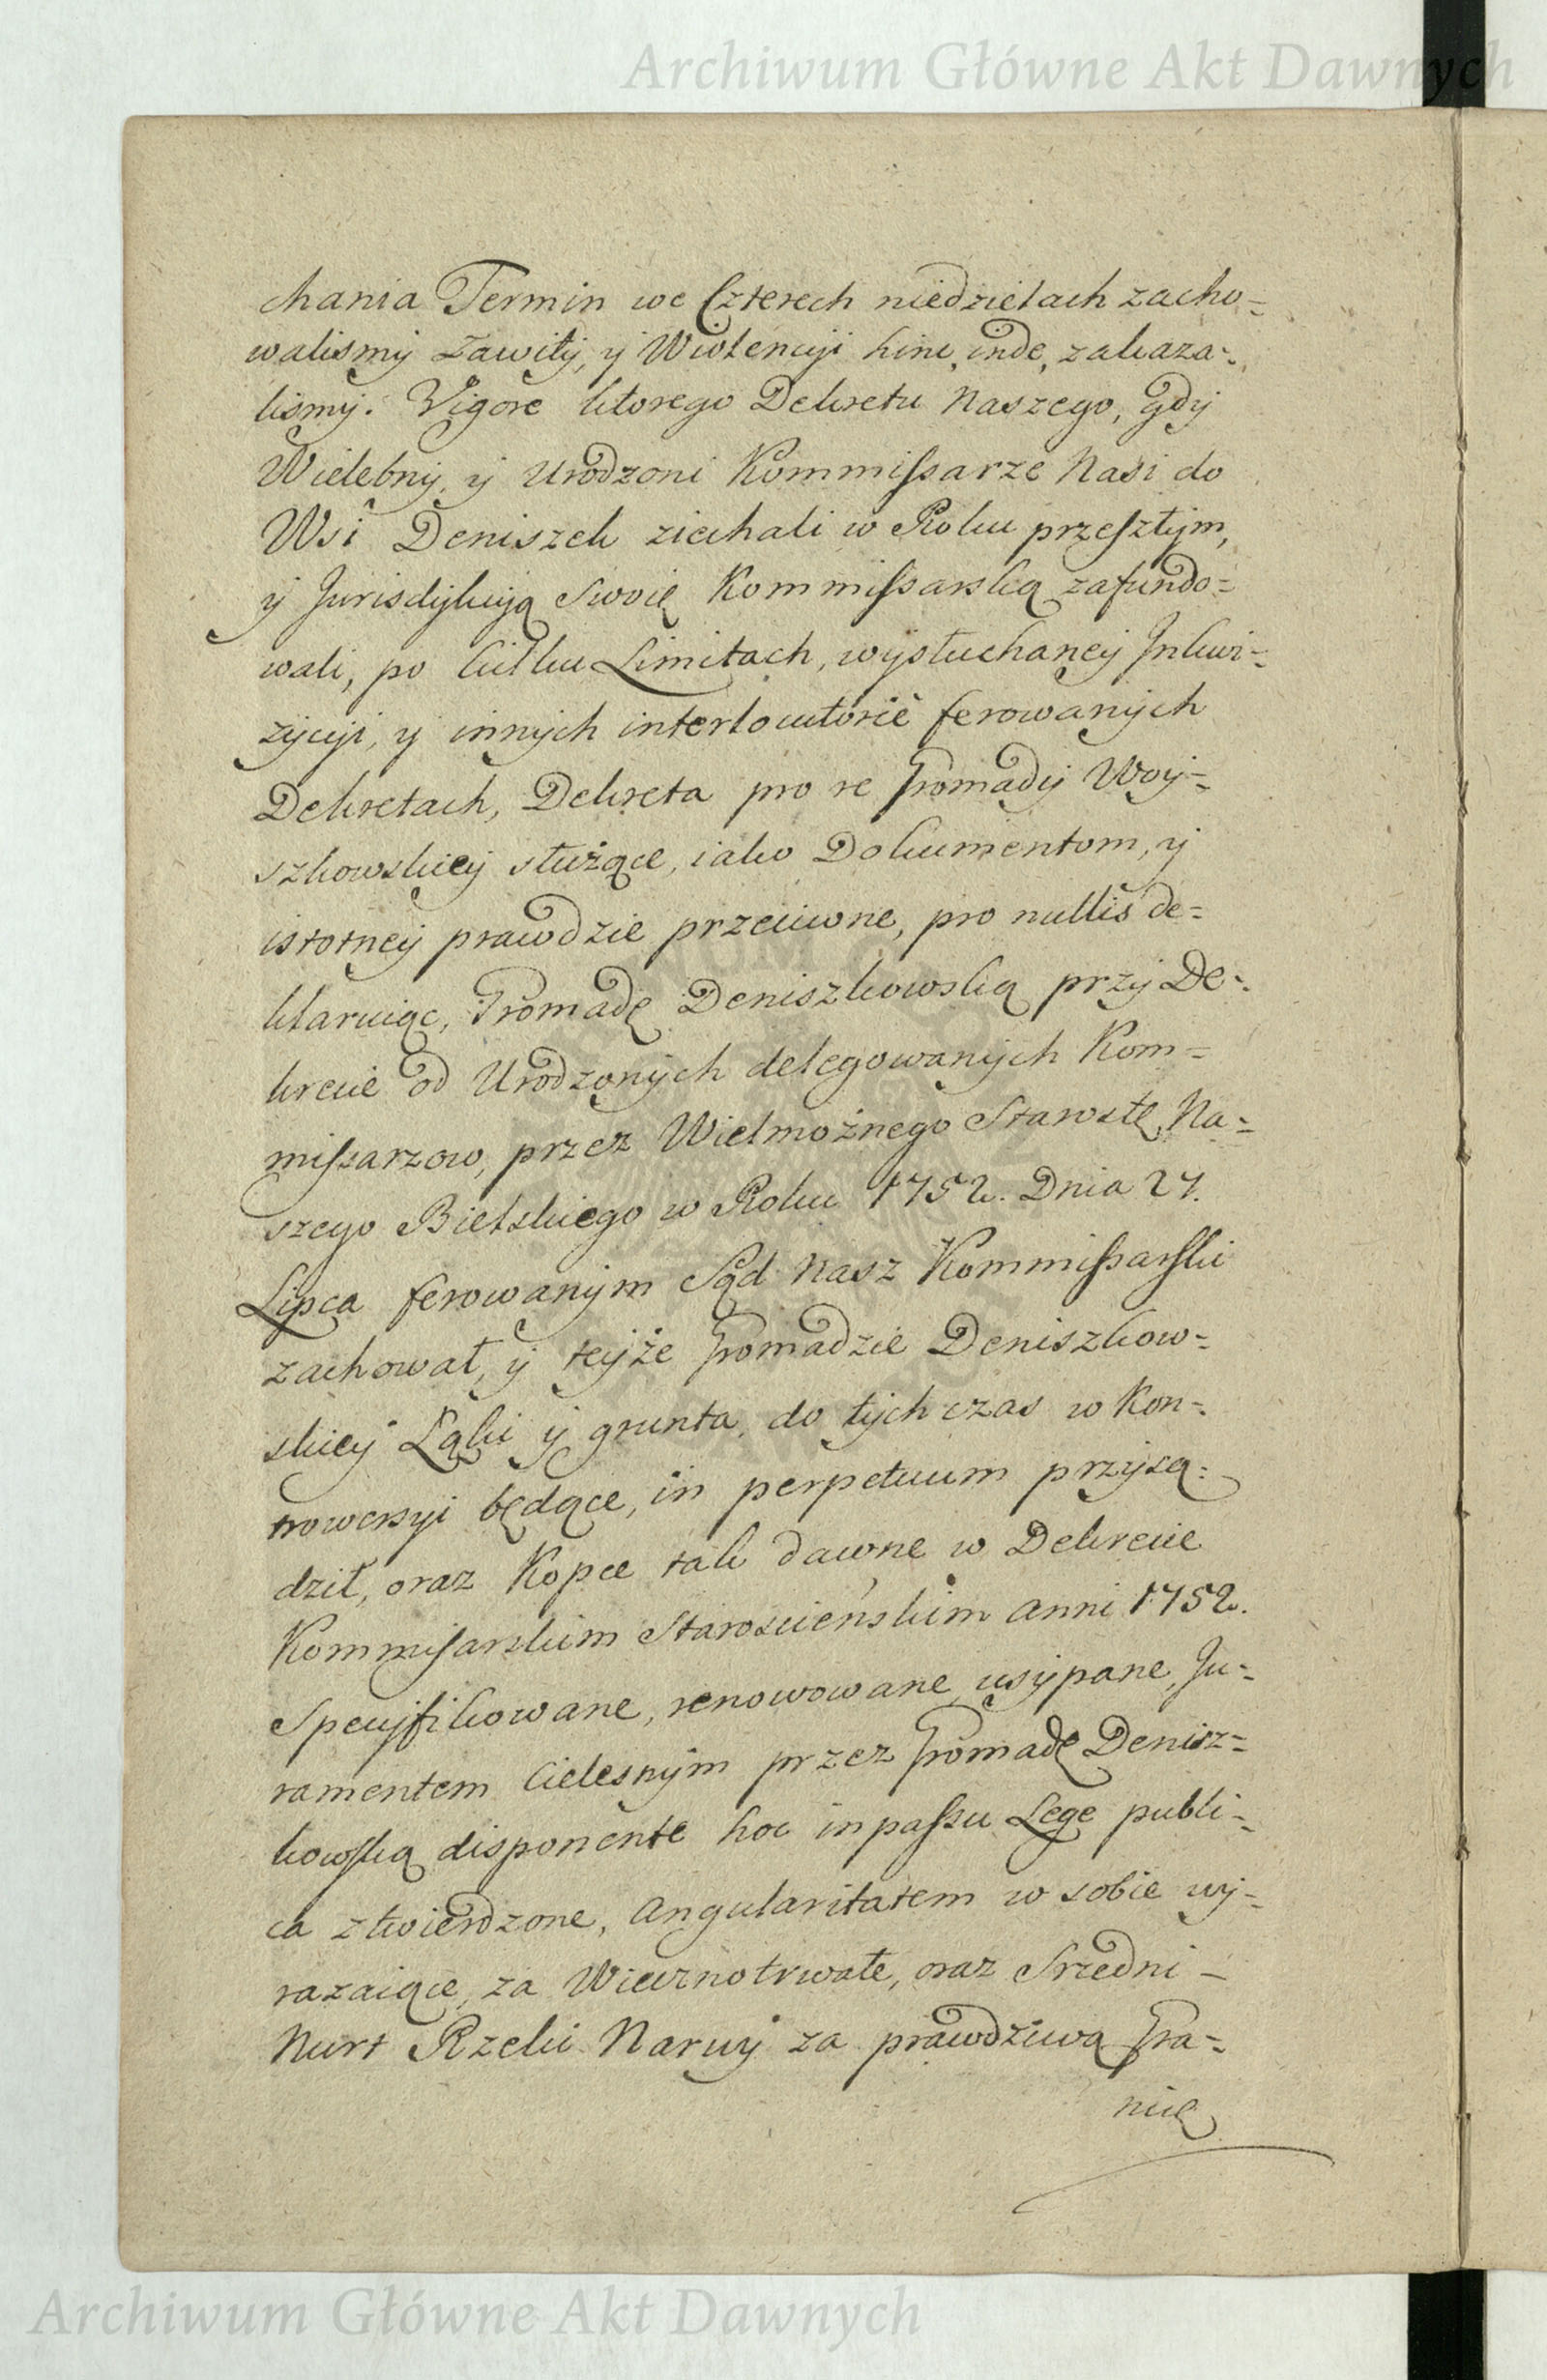 Archiwum Główne Akt Dawnych
chania Termin we Czterech niedzielach zacho=
waliśmy zawity, y Wiolencyi hinc, inde, zakaza=
liśmy. Vigore ktorego Dekretu Naszego, gdy
Wielebny, y Urodzoni Kommissarze Nasi do
Wsi Deniszek ziechali w Roku przeszłym,
y Jurisdykcyą swoię Kommissarską zafundo=
wali, po kilku Limitach, wysłuchaney Inkwi=
zycyi, y innych interlocutorie ferowanych
Dekretach, Dekreta pro re Gromady Woy=
szkowskiey służące, iako Dokumentom, y
istotney prawdzie przeciwne, pro nullis de=
klaruiąc, Gromadę Deniszkowską przy De=
krecie od Urodzonych delegowanych Kom=
missarzow, przez Wielmożnego Starostę Na=
szego Bielskiego w Roku 1752. Dnia 27.
Lipca ferowanym Sąd Nasz Kommissarski
zachował, y teyże Gromadzie Deniszkow=
skiey Łąki y grunta, do tych czas w Kon=
trowersyi będące, in perpetuum przysą=
dził, oraz Kopce tak dawne w Dekrecie
Kommisarskim Starościeńskim anni 1752.
Specyfikowane, renowowane, usypane, Ju=
ramentem Cielesnym przez Gromadę Denisz=
kowską disponente hoc in passu Lege publi=
ca ztwierdzone, angularitatem w sobie wy=
razaiące, za Wiecznotrwałe, oraz Sredni=
Nurt Rzeki Narwy za prawdziwą Gra=
nicę
Archiwum Główne Akt Dawnych